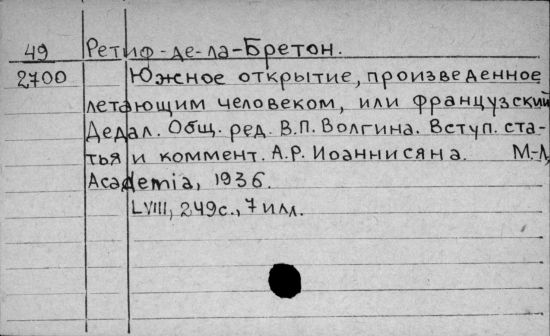 49 Ретиф-де-ла-Бретон.
2700 Южное открытие, произведенное
летающим человеком, или французский
Дедал. Общ. ред. В.П. Волгина. Вступ. ста-
тья и коммент. А.Р. Иоаннисяна. М-Л,
Academia, 1936.
LVIII, 249с., 7 илл.